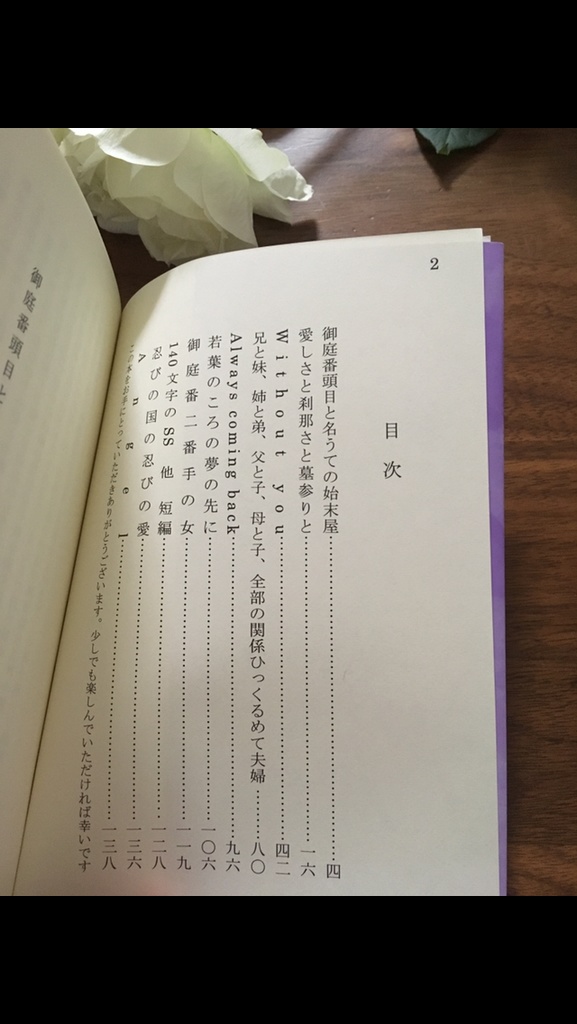 2
目次
御庭番頭目と名うての始末屋……………四
愛しさと刹那さと墓参りと……………一六
Without you……………四二
兄と妹、姉と弟、父と子、母と子、全部の関係ひっくるめて夫婦……八〇
Always coming back……………九六
若葉のころの夢の先に……………一〇六
御庭番二番手の女……………一一九
140文字のSS 他 短編……………一二八
忍びの国の忍びの愛……………一三六
Angel……………一三八
この本をお手にとっていただきありがとうございます。少しでも楽しんでいただければ幸いです
御庭番頭目と